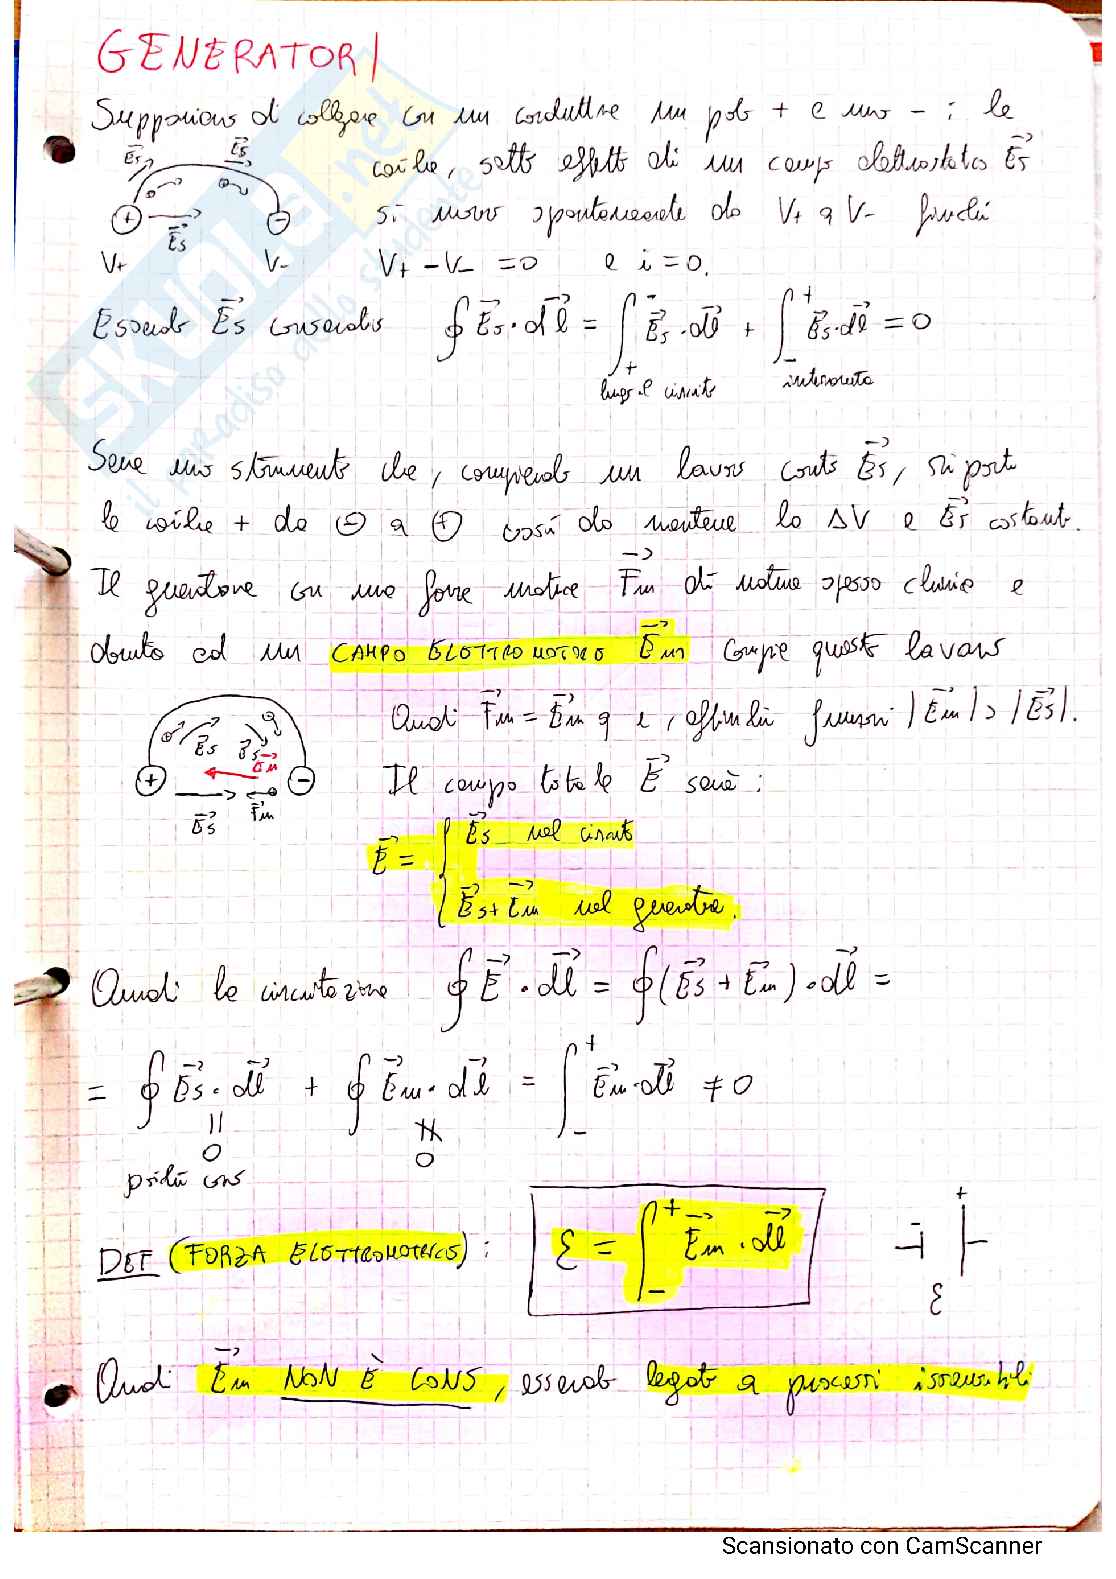 GENERATORI
Supponiamo di collegare con un conduttore un polo + e uno - : le
cariche, sotto effetto di un campo elettrostatico E⃗s
si muovono spontaneamente da V+ a V- finché
V+ - V- = 0 e i = 0.
E⃗s E⃗s
+ E⃗s -
V+ V-
Essendo E⃗s conservativo ∮ E⃗s · dl⃗ = ∫₊⁻ E⃗s · dl⃗ + ∫₋⁺ E⃗s · dl⃗ = 0
lungo il circuito internamente
Serve uno strumento che, compiendo un lavoro contro E⃗s, riporti
le cariche + da ⊖ a ⊕ così da mantenere la ΔV e E⃗s costanti.
Il generatore con una forza motrice F⃗m di natura spesso chimica e
dovuta ad un CAMPO ELETTROMOTORE E⃗m compie questo lavoro
Quindi F⃗m = E⃗m q e, affinché funzioni |E⃗m| > |E⃗s|.
E⃗s E⃗s E⃗m
+ -
E⃗s F⃗m
Il campo totale E⃗ sarà :
E⃗ = { E⃗s nel circuito
E⃗s + E⃗m nel generatore.
Quindi la circuitazione ∮ E⃗ · dl⃗ = ∮ (E⃗s + E⃗m) · dl⃗ =
= ∮ E⃗s · dl⃗ + ∮ E⃗m · dl⃗ = ∫₋⁺ E⃗m · dl⃗ ≠ 0
= 0 ≠ 0
poiché cons
DEF (FORZA ELETTROMOTRICE) : ε = ∫₋⁺ E⃗m · dl⃗
- +
ε
Quindi E⃗m NON È CONS, essendo legato a processi irreversibili
SKUOLA.net
il paradiso dello studente
Scansionato con CamScanner